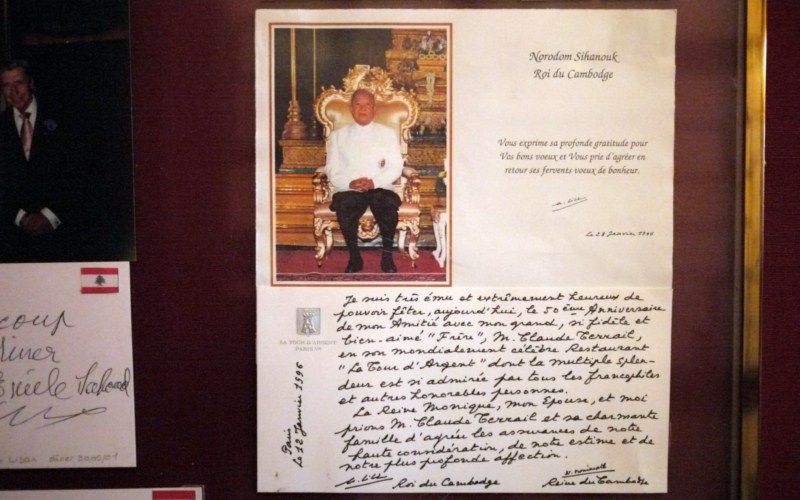 Norodom Sihanouk
Roi du Cambodge
Vous exprime sa profonde gratitude pour
Vos bons voeux et Vous prie d'agréer en
retour ses fervents voeux de bonheur.
Le 28 Janvier 1996
Je suis très ému et extrêmement heureux de
pouvoir fêter, aujourd'hui, le 50ème Anniversaire
de mon Amitié avec mon grand, si fidèle et
bien-aimé "Frère", M. Claude Terrail,
en son mondialement célèbre Restaurant
"La Tour d'Argent" dont la multiple splen-
deur est si admirée par tous les francophiles
et autres honorables personnes.
La Reine Monique, mon Epouse, et moi
prions M. Claude Terrail et sa charmante
famille d'agréer les assurances de notre
haute considération, de notre estime et de
notre plus profonde affection.
Roi du Cambodge
Reine du Cambodge
LA TOUR D'ARGENT
PARIS
Paris
Le 12 Janvier 1996
coup
Liban dîner